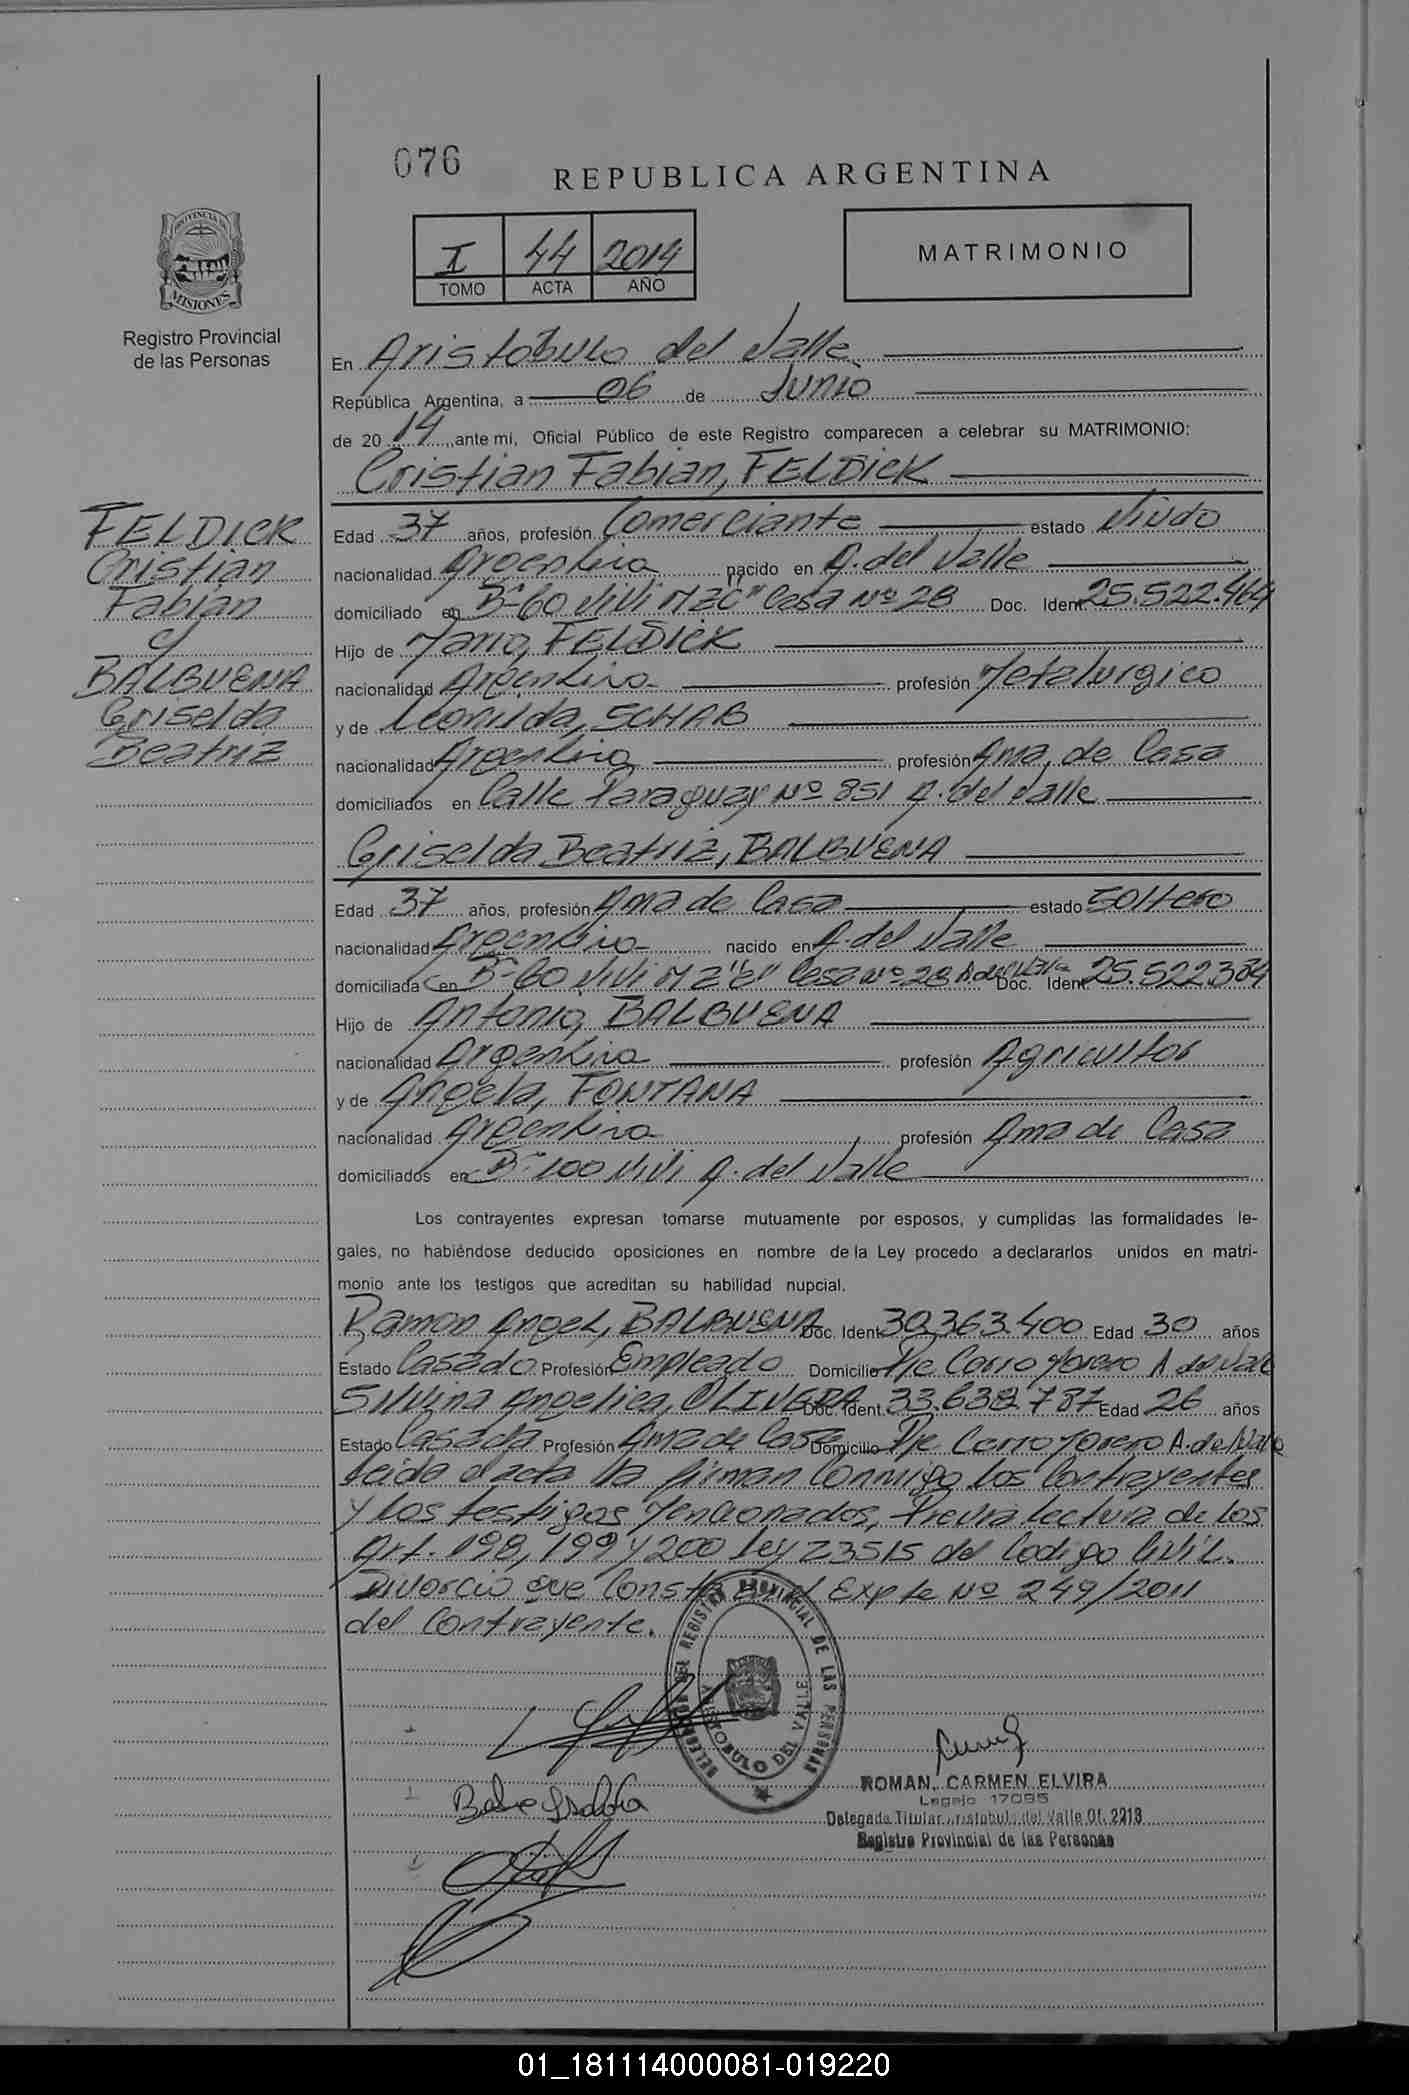 076
REPUBLICA ARGENTINA
I 44 2014
TOMO ACTA AÑO
MATRIMONIO
PROVINCIA DE
MISIONES
Registro Provincial
de las Personas
En Aristobulo del Valle
República Argentina, a 06 de Junio
de 2014 ante mi, Oficial Público de este Registro comparecen a celebrar su MATRIMONIO:
Cristian Fabian, FELDICK
FELDICK
Cristian
Fabian
y
BALBUENA
Griselda
Beatriz
Edad 37 años, profesión Comerciante estado Viudo
nacionalidad Argentina nacido en A. del Valle
domiciliado en Bº 60 Vivi Mz "C" Casa Nº 28 Doc. Ident 25.522.464
Hijo de Mario, FELDICK
nacionalidad Argentina profesión Metalurgico
y de Leonilda, SCHAB
nacionalidad Argentina profesión Ama de Casa
domiciliados en Calle Paraguay Nº 851 A. del Valle
Griselda Beatriz, BALBUENA
Edad 37 años, profesión Ama de Casa estado Soltero
nacionalidad Argentina nacido en A. del Valle
domiciliada en Bº 60 Vivi Mz "C" Casa Nº 28 A. del Valle Doc. Ident 25.522.384
Hijo de Antonio, BALBUENA
nacionalidad Argentina profesión Agricultor
y de Angela, FONTANA
nacionalidad Argentina profesión Ama de Casa
domiciliados en Bº 100 Vivi A. del Valle
Los contrayentes expresan tomarse mutuamente por esposos, y cumplidas las formalidades le-
gales, no habiéndose deducido oposiciones en nombre de la Ley procedo a declararlos unidos en matri-
monio ante los testigos que acreditan su habilidad nupcial.
Ramon Angel, BALBUENA Doc. Ident 30.363.400 Edad 30 años
Estado Casado Profesión Empleado Domicilio Pje Cerro Moreno A. del Valle
Silvina Angelica, OLIVERA Doc. Ident. 33.638.787 Edad 26 años
Estado Casada Profesión Ama de Casa Domicilio Pje Cerro Moreno A. del Valle
Leida el acta la firman Conmigo los Contrayentes
y los testigos Mencionados, Previa lectura de los
Art. 198, 199 y 200 Ley 23515 del Codigo Civil.
Divorcio que Consta en el Expte Nº 249/2011
del Contrayente.
DELEGACION DEL REGISTRO PROVINCIAL DE LAS PERSONAS
ARISTOBULO DEL VALLE
ROMAN, CARMEN ELVIRA
Legajo 17095
Delegada Titular Aristobulo del Valle Of. 2213
Registro Provincial de las Personas
01_181114000081-019220